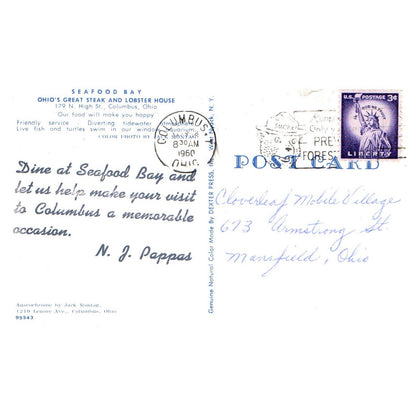 SEAFOOD BAY
OHIO'S GREAT STEAK AND LOBSTER HOUSE
179 N. High St., Columbus, Ohio
Our food will make you happy
Friendly service - Diverting tidewater atmosphere
Live fish and turtles swim in our window aquarium.
COLOR PHOTO BY
Dine at Seafood Bay and
let us help make your visit
to Columbus a memorable
occasion.
N. J. Pappas
Ansochrome by Jack
1210 Lenore Ave., Columbus, Ohio
95343
Genuine Natural Color Made By DEXTER PRESS, N. Y.
COLUMBUS,
8 30 AM
1960
OHIO
Only
PRE
FOREST
U.S. POSTAGE 3¢
IN GOD WE TRUST
LIBERTY
POST CARD
Cloverleaf Mobile Village
673 Armstrong St.
Mansfield, Ohio